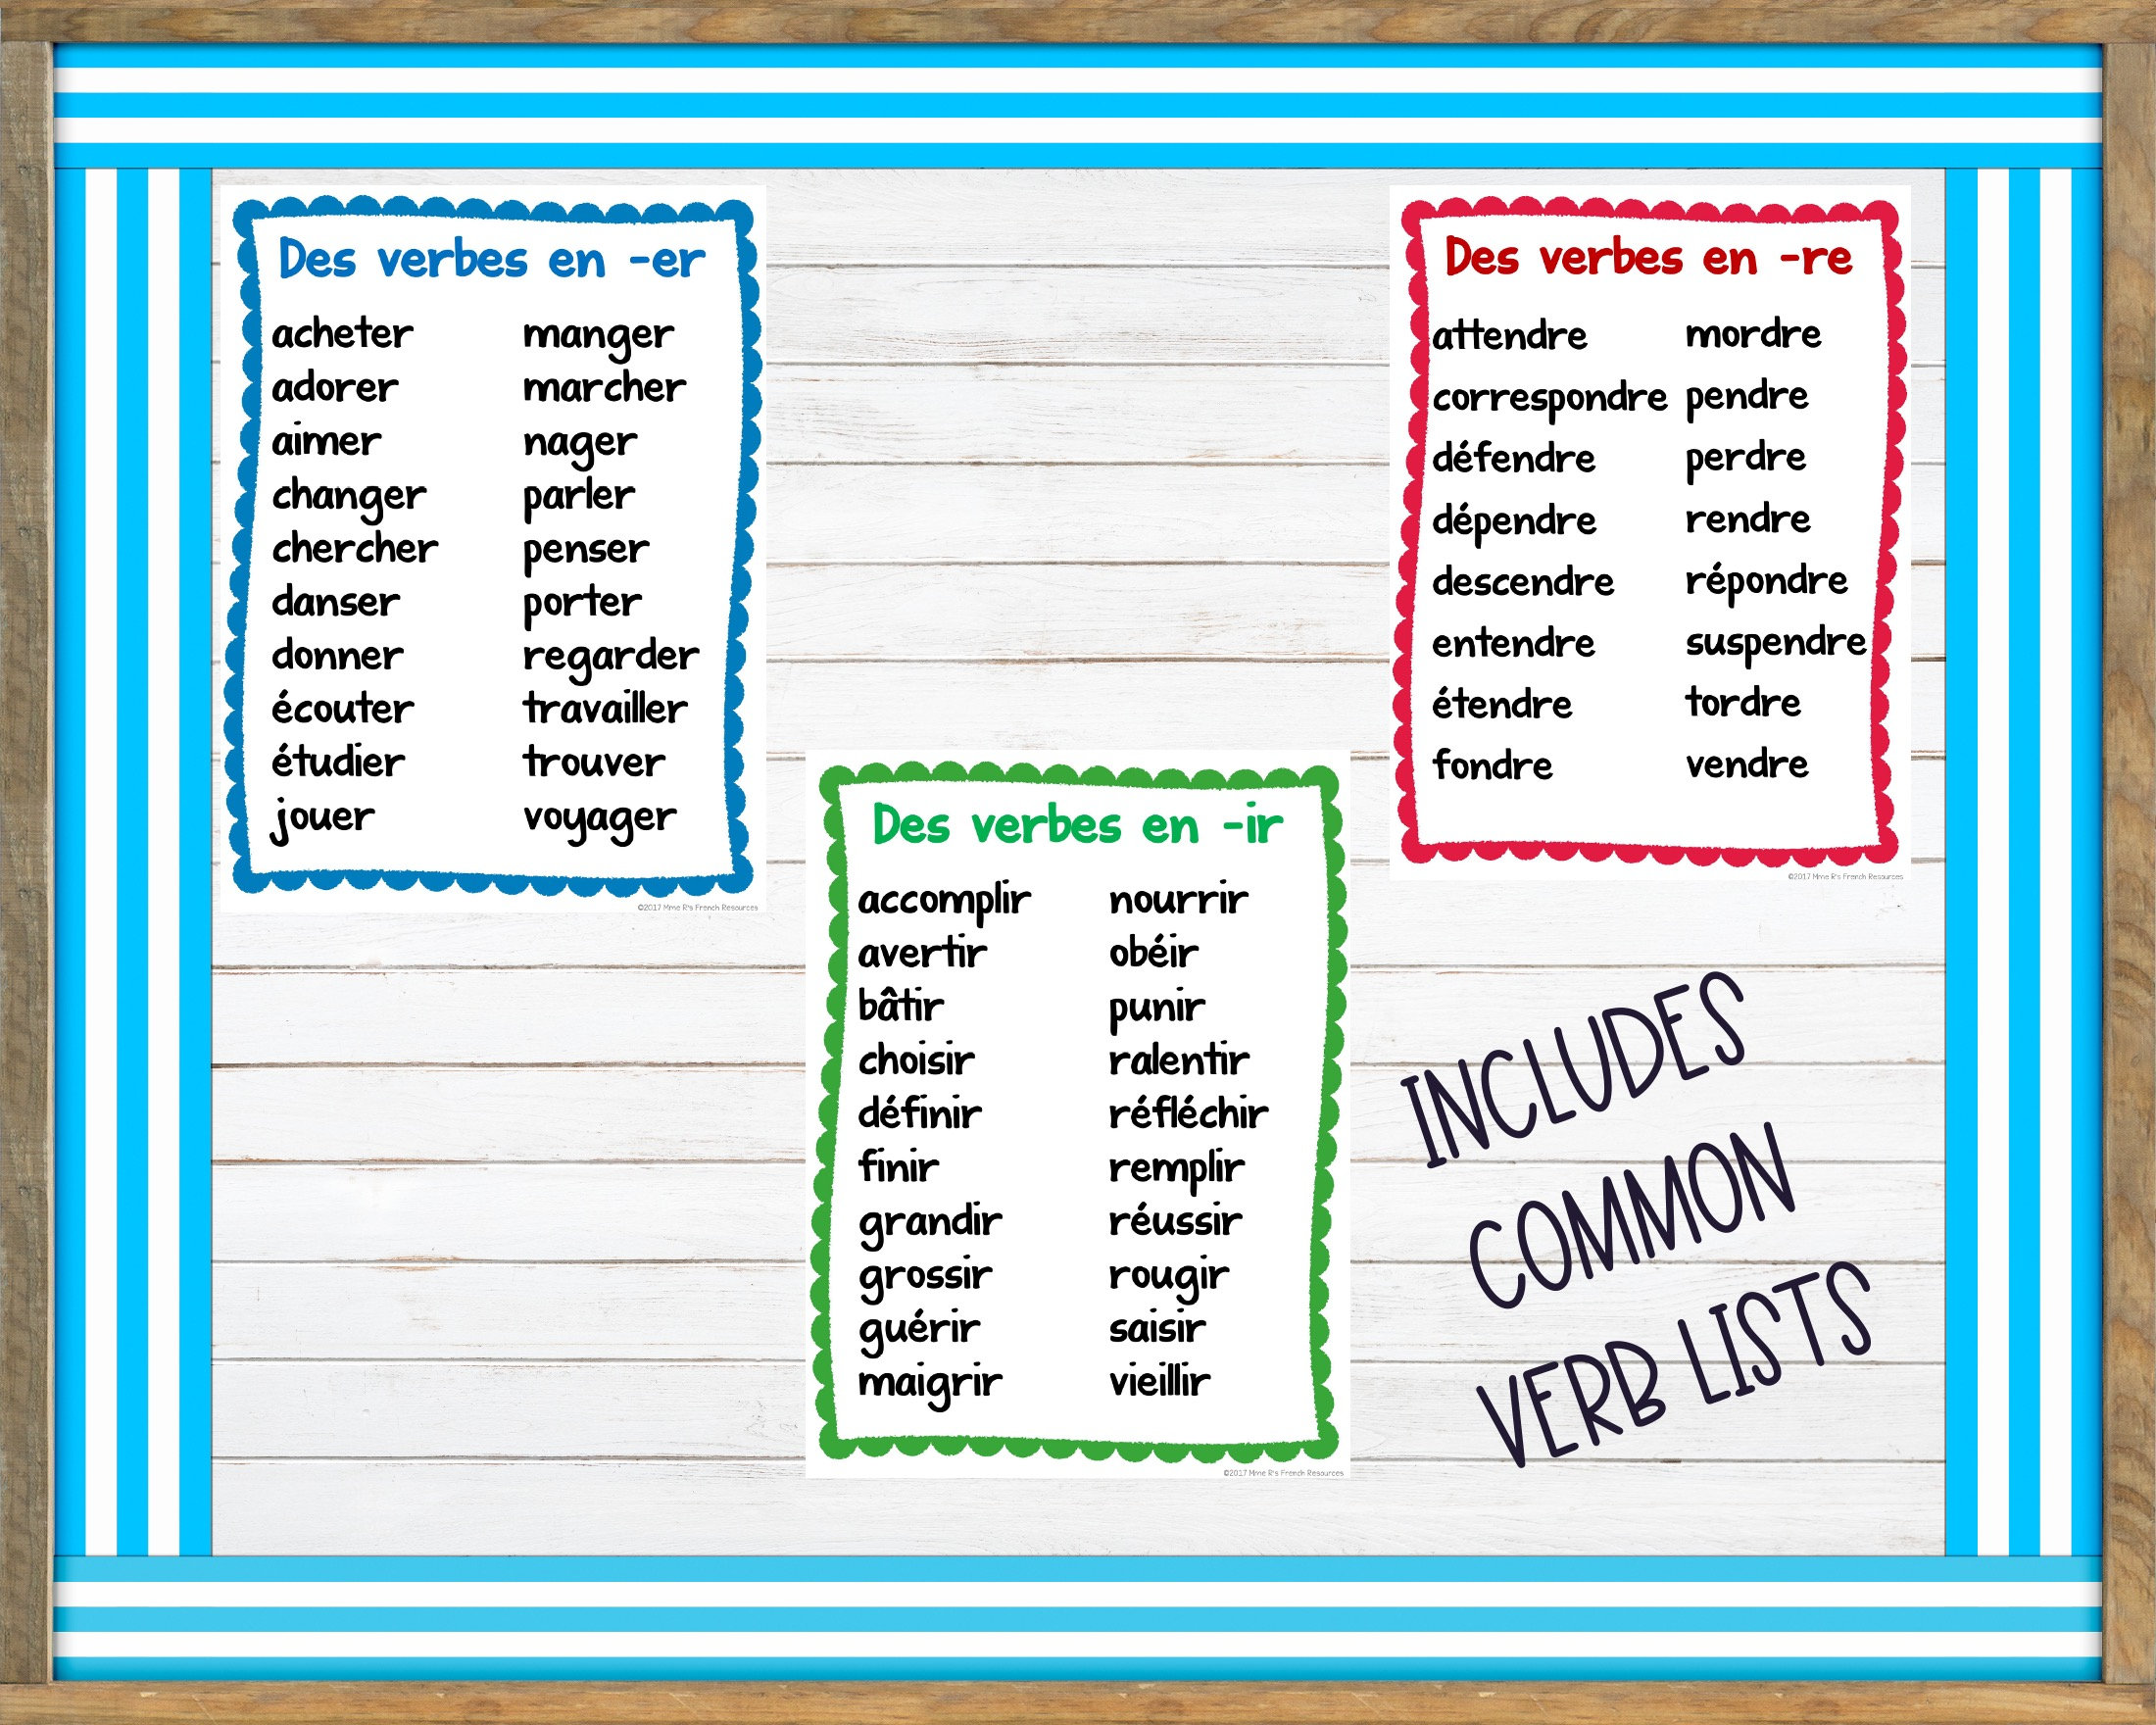 Des verbes en -er
acheter manger
adorer marcher
aimer nager
changer parler
chercher penser
danser porter
donner regarder
écouter travailler
étudier trouver
jouer voyager
©2017 Mme R's French Resources
Des verbes en -re
attendre mordre
correspondre pendre
défendre perdre
dépendre rendre
descendre répondre
entendre suspendre
étendre tordre
fondre vendre
©2017 Mme R's French Resources
Des verbes en -ir
accomplir nourrir
avertir obéir
bâtir punir
choisir ralentir
définir réfléchir
finir remplir
grandir réussir
grossir rougir
guérir saisir
maigrir vieillir
©2017 Mme R's French Resources
INCLUDES
COMMON
VERB LISTS